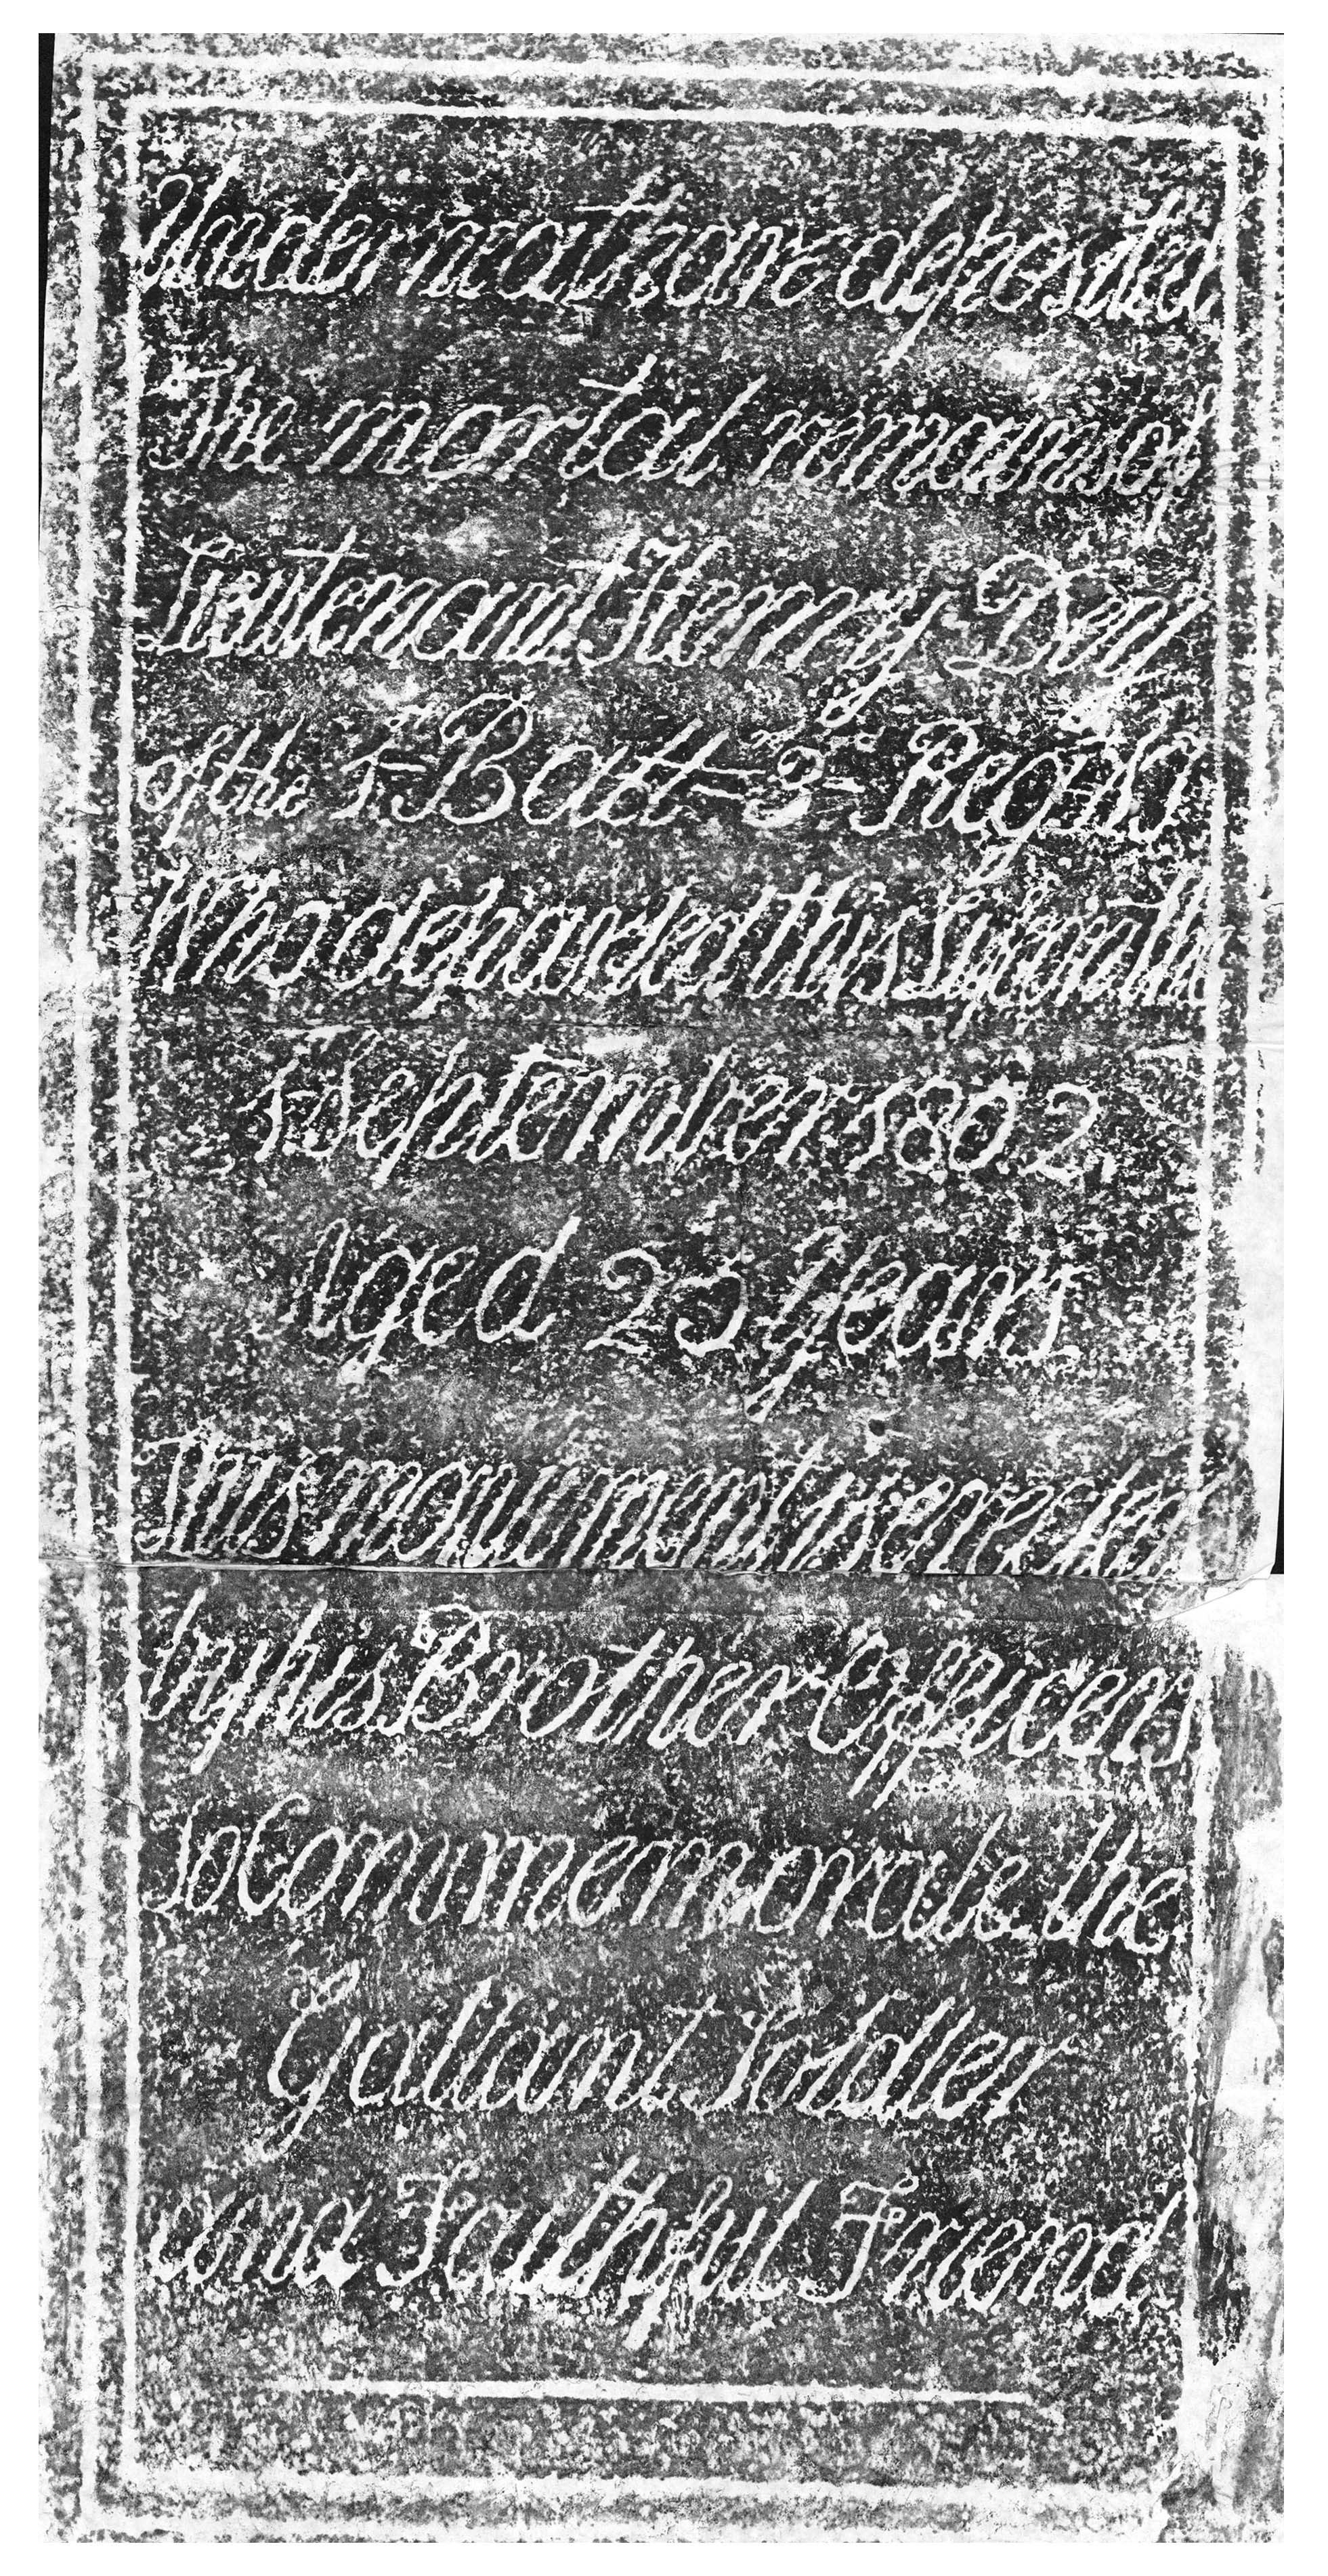 Underneath are deposited
The mortal remains of
Lieutenant Henry Dey
of the 1st Batt 2d Regt NI
Who departed this Life on the
1 September 1802
Aged 25 years
This monument is erected
by his Brother Officers
to Commemorate the
Gallant Soldier
and Faithful Friend